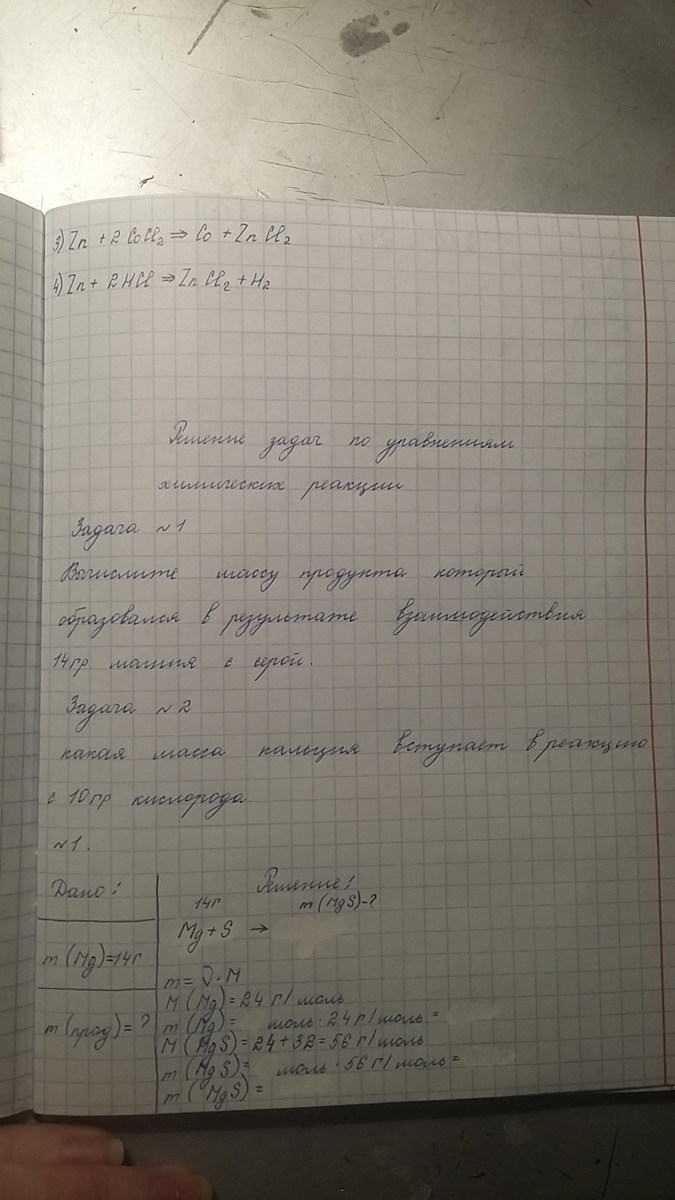 3) Zn + 2 CoCl₂ ⇒ Co + ZnCl₂
4) Zn + 2HCl ⇒ ZnCl₂ + H₂
Решение задач по уравнениям
химических реакции
Задача ~ 1
Вычислите массу продукта который
образовался в результате взаимодействия
14гр магния с серой.
Задача ~ 2
какая масса кальция вступает в реакцию
с 10гр кислорода.
~1.
Дано:
m (Mg)=14г
m (прод) = ?
Решение:
14г m (MgS)-?
Mg + S →
m = ν · M
M (Mg) = 24 г/моль
m (Mg) = моль · 24 г/моль =
M (MgS) = 24 + 32 = 56 г/моль
m (MgS) = моль · 56 г/моль =
m (MgS) =